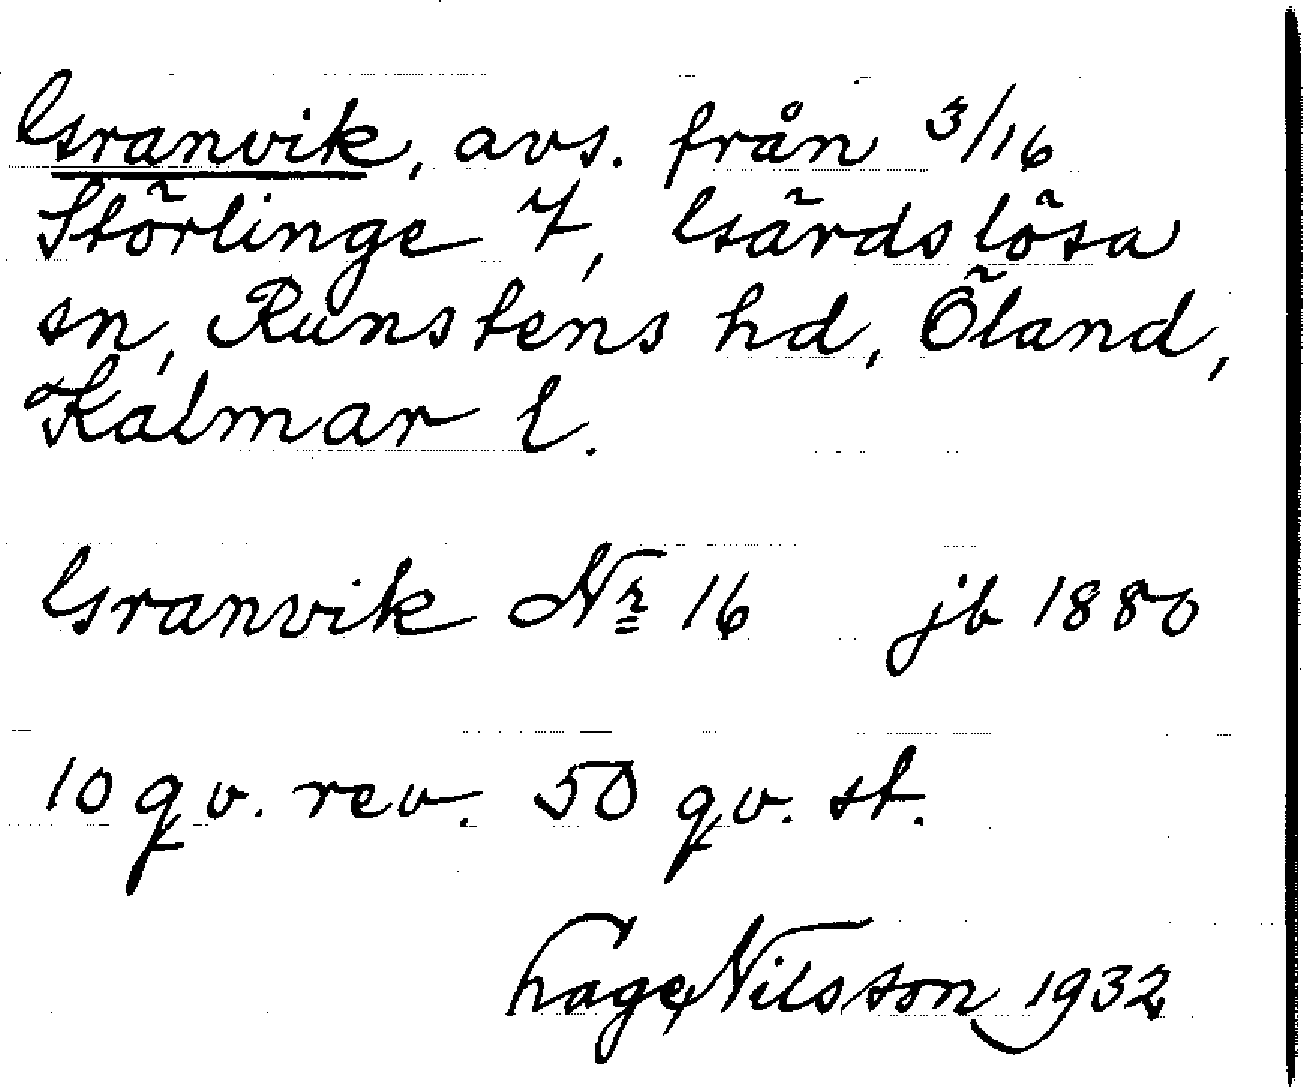 Granvik, avs. från 3/16
Störlinge 7, Gärdslösa
sn, Runstens hd, Öland,
Kalmar l.
Granvik Nr 16 jb 1880
10 qv. rev. 50 qv. st.
Hage Nilsson 1932